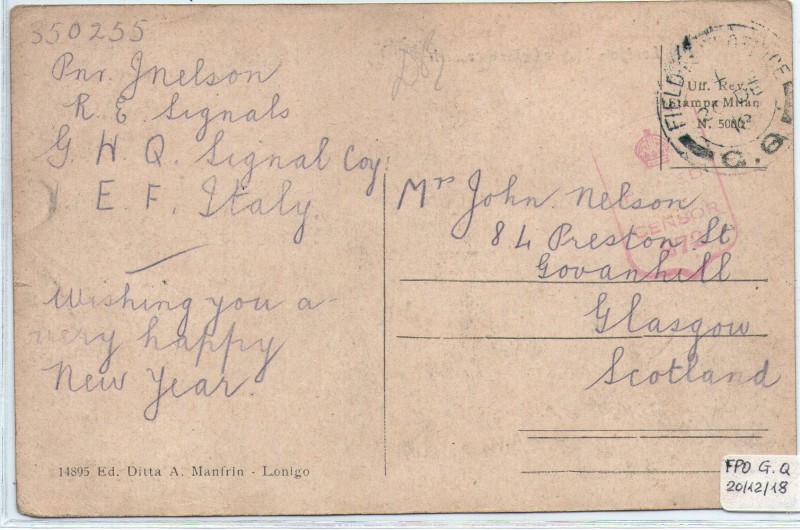 350255
Pnr. J Nelson
R. E. Signals
G. H. Q. Signal Coy
I. E. F. Italy.
Wishing you a
very happy
New Year.
14895 Ed. Ditta A. Manfrin - Lonigo
FIELD POST OFFICE
G.Q
Uff. Rev.
Stampa Milan
N. 5080
CENSOR
Mrs John Nelson
84 Preston St
Govanhill
Glasgow
Scotland
FPO G.Q
20/12/18